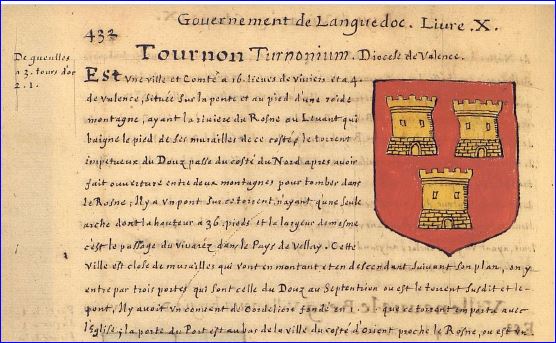 Gouvernement de Languedoc. Liure .X.
433
Tournon Turnonium. Diocese de Valence.
De gueulles
a 3. tours d'or
2. 1.
Est vne ville et Comté a 16. lieues de Viuiers et a 4.
de valence, située sur la pente et au pied d'une roide
montagne, ayant la riuiere du Rosne au Leuant qui
baigne le pied de ses murailles de ce costé, le torrent
impetueux du Doux passe du costé du Nord apres auoir
fait ouuerture entre deux montagnes pour tomber dans
le Rosne, Il y a vn pont sur ce torrent, n'ayant qu'une seule
arche dont la hauteur a 36. pieds et la largeur de mesme
c'est le passage du viuaréz dans le Pays de Vellay. Cette
ville est close de murailles qui vont en montant et en descendant suiuant son plan, on y
entre par trois portes qui sont celle du Doux au Septention ou est le torrent susdit et le
pont, Il y auoit vn conuent de Cordeliers fondé en 1. que ce torrent emporta auec
l'Eglise; la porte du Port est au bas de la ville du costé d'Orient proche le Rosne, ou est vn